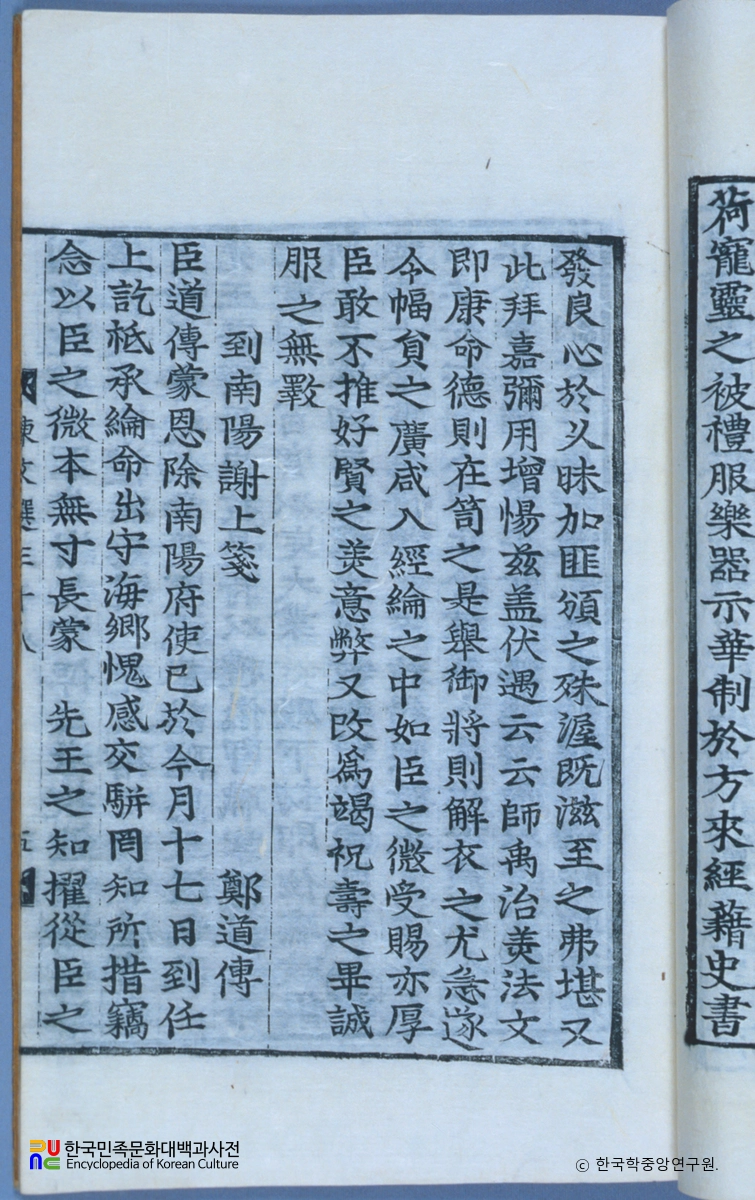 荷寵靈之被禮服樂器示華制於方來經籍史書
發良心於乆昧加匪頒之殊渥旣滋至之弗堪又
此拜嘉彌用增惕兹盖伏遇云云師禹治羙法文
即康命德則在笥之是舉御將則解衣之尤急遂
令幅貟之廣咸入經綸之中如臣之微受賜亦厚
臣敢不推好賢之羙意弊又改爲竭祝壽之畢誠
服之無斁
到南陽謝上箋 鄭道傳
臣道傳蒙恩除南陽府使已於今月十七日到任
上訖袛承綸命出守海郷愧感交騈罔知所措竊
念以臣之微本無寸長蒙 先王之知擢從臣之
東文選三十八 五
한국민족문화대백과사전
Encyclopedia of Korean Culture
ⓒ 한국학중앙연구원.